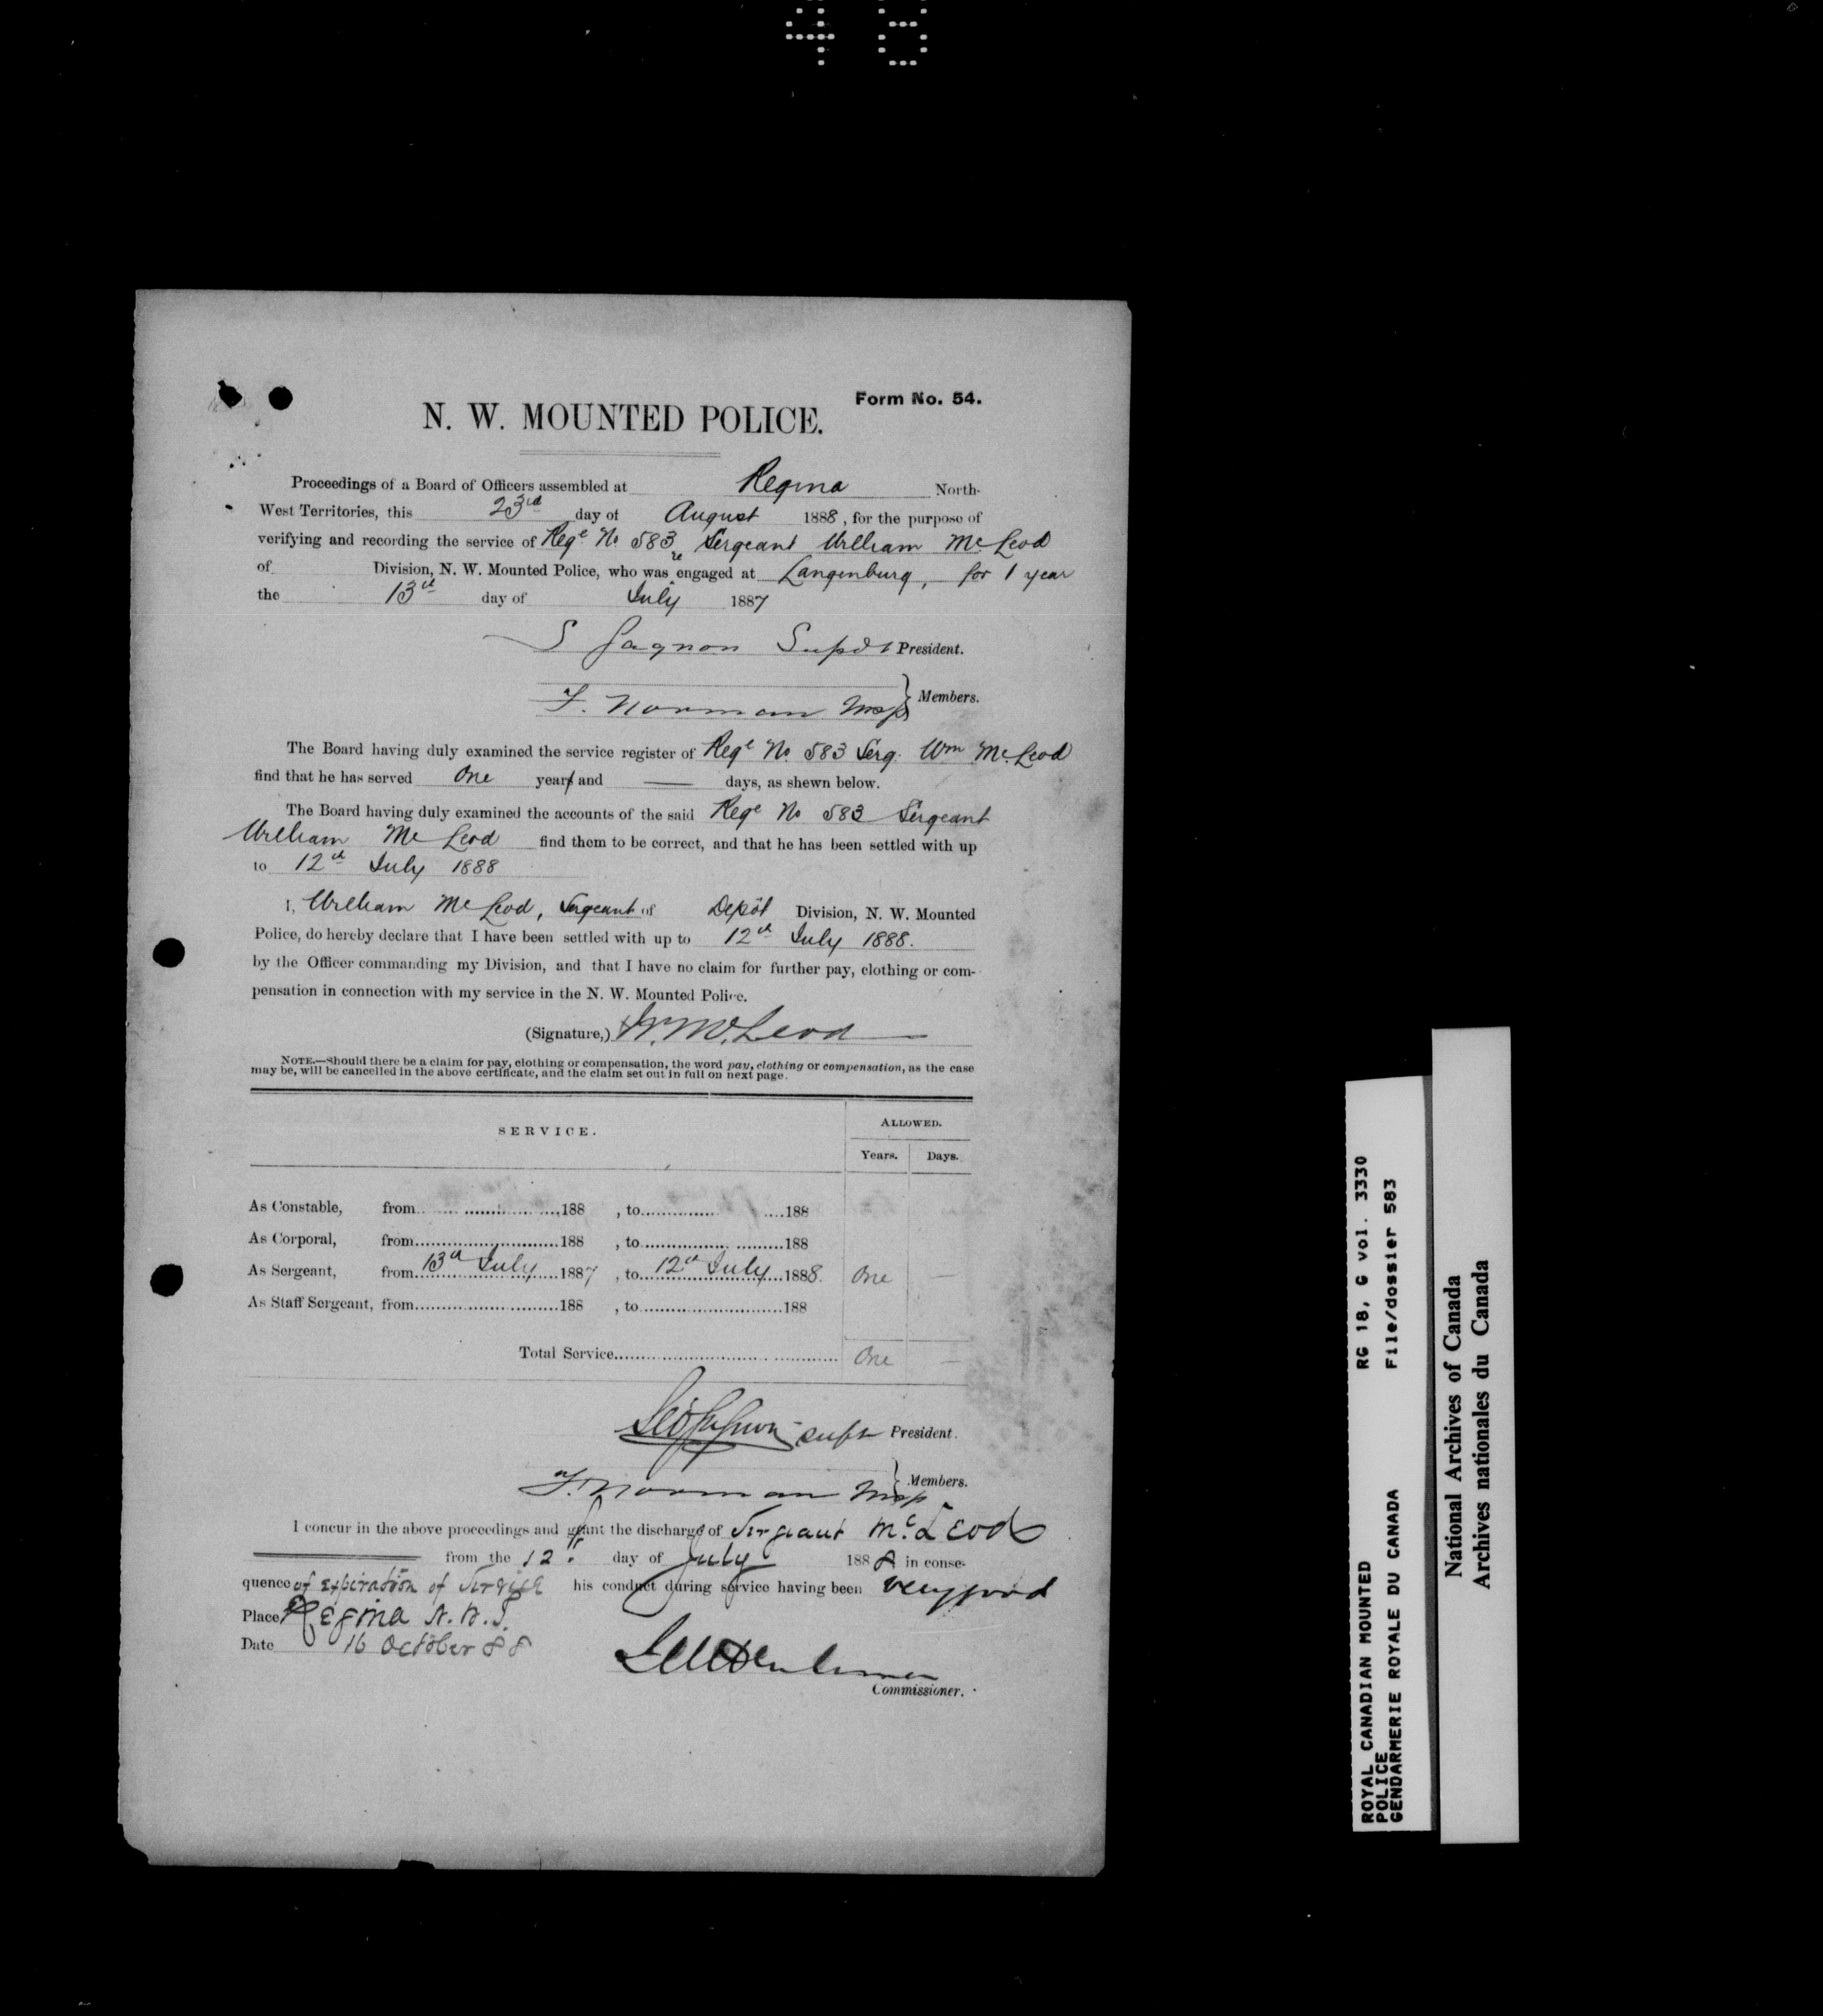 48
Form No. 54.
N. W. MOUNTED POLICE.
Proceedings of a Board of Officers assembled at Regina North-
West Territories, this 23rd day of August 1888, for the purpose of
verifying and recording the service of Regl No 583 Sergeant William McLeod
of Division, N. W. Mounted Police, who was re engaged at Langenburg, for 1 year
the 13th day of July 1887
S Gagnon Supdt President.
F. Norman Insp Members.
The Board having duly examined the service register of Regl No. 583 Serg. Wm McLeod
find that he has served One years and — days, as shewn below.
The Board having duly examined the accounts of the said Regl No 583 Sergeant
William McLeod find them to be correct, and that he has been settled with up
to 12th July 1888
I, William McLeod, Sergeant of Depôt Division, N. W. Mounted
Police, do hereby declare that I have been settled with up to 12th July 1888.
by the Officer commanding my Division, and that I have no claim for further pay, clothing or com-
pensation in connection with my service in the N. W. Mounted Police.
(Signature,) W. McLeod
NOTE.—Should there be a claim for pay, clothing or compensation, the word pay, clothing or compensation, as the case
may be, will be cancelled in the above certificate, and the claim set out in full on next page.
SERVICE. ALLOWED.
Years. Days.
As Constable, from 188 , to 188
As Corporal, from 188 , to 188
As Sergeant, from 13th July 1887 , to 12th July 1888. One —
As Staff Sergeant, from 188 , to 188
Total Service One —
Supt President.
F. Norman Insp Members.
I concur in the above proceedings and grant the discharge of Sergeant McLeod
from the 12th day of July 1888 in conse-
quence of expiration of Service his conduct during service having been very good
Place Regina N.W.T.
Date 16 October 88
Commissioner.
ROYAL CANADIAN MOUNTED RG 18, G vol. 3330
POLICE
GENDARMERIE ROYALE DU CANADA File/dossier 583
National Archives of Canada
Archives nationales du Canada